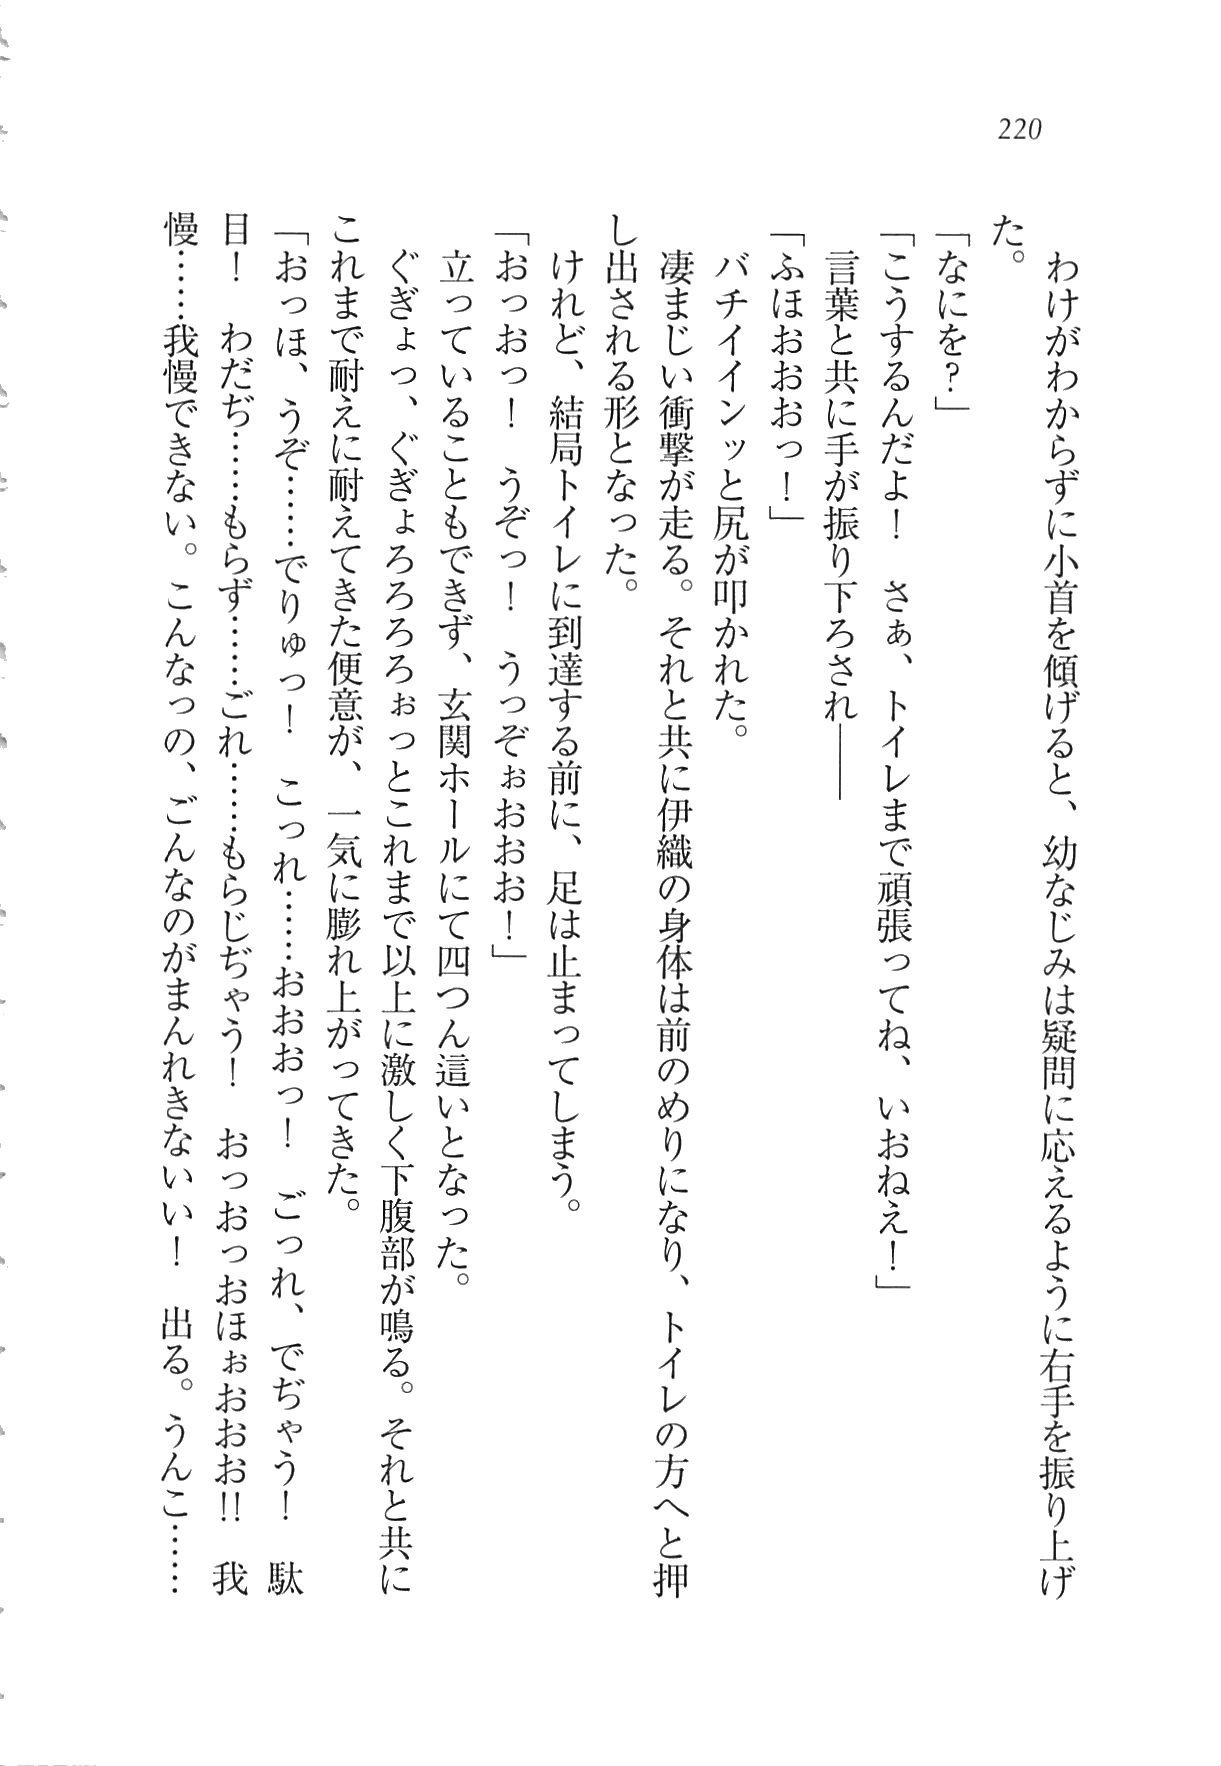 220
　わけがわからずに小首を傾げると、幼なじみは疑問に応えるように右手を振り上げ
た。
「なにを？」
「こうするんだよ！　さぁ、トイレまで頑張ってね、いおねえ！」
　言葉と共に手が振り下ろされ――
「ふほおおおっ！」
　バチイインッと尻が叩かれた。
　凄まじい衝撃が走る。それと共に伊織の身体は前のめりになり、トイレの方へと押
し出される形となった。
　けれど、結局トイレに到達する前に、足は止まってしまう。
「おっおっ！　うぞっ！　うっぞぉおおお！」
　立っていることもできず、玄関ホールにて四つん這いとなった。
　ぐぎょっ、ぐぎょろろろろぉっとこれまで以上に激しく下腹部が鳴る。それと共に
これまで耐えに耐えてきた便意が、一気に膨れ上がってきた。
「おっほ、うぞ……でりゅっ！　こっれ……おおおっ！　ごっれ、でぢゃう！　駄
目！　わだぢ……もらず……ごれ……もらじぢゃう！　おっおっおほぉおおお!!　我
慢……我慢できない。こんなっの、ごんなのがまんれきないい！　出る。うんこ……